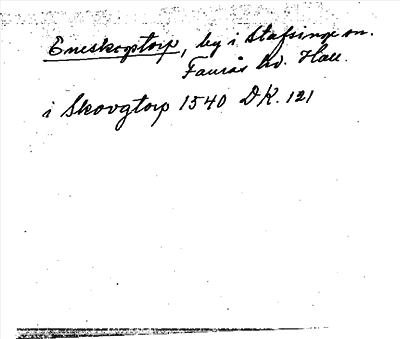 Eneskogstorp, by i Stafsinge sn.
Faurås hd. Hall.
i Skovgtorp 1540 DK. 121